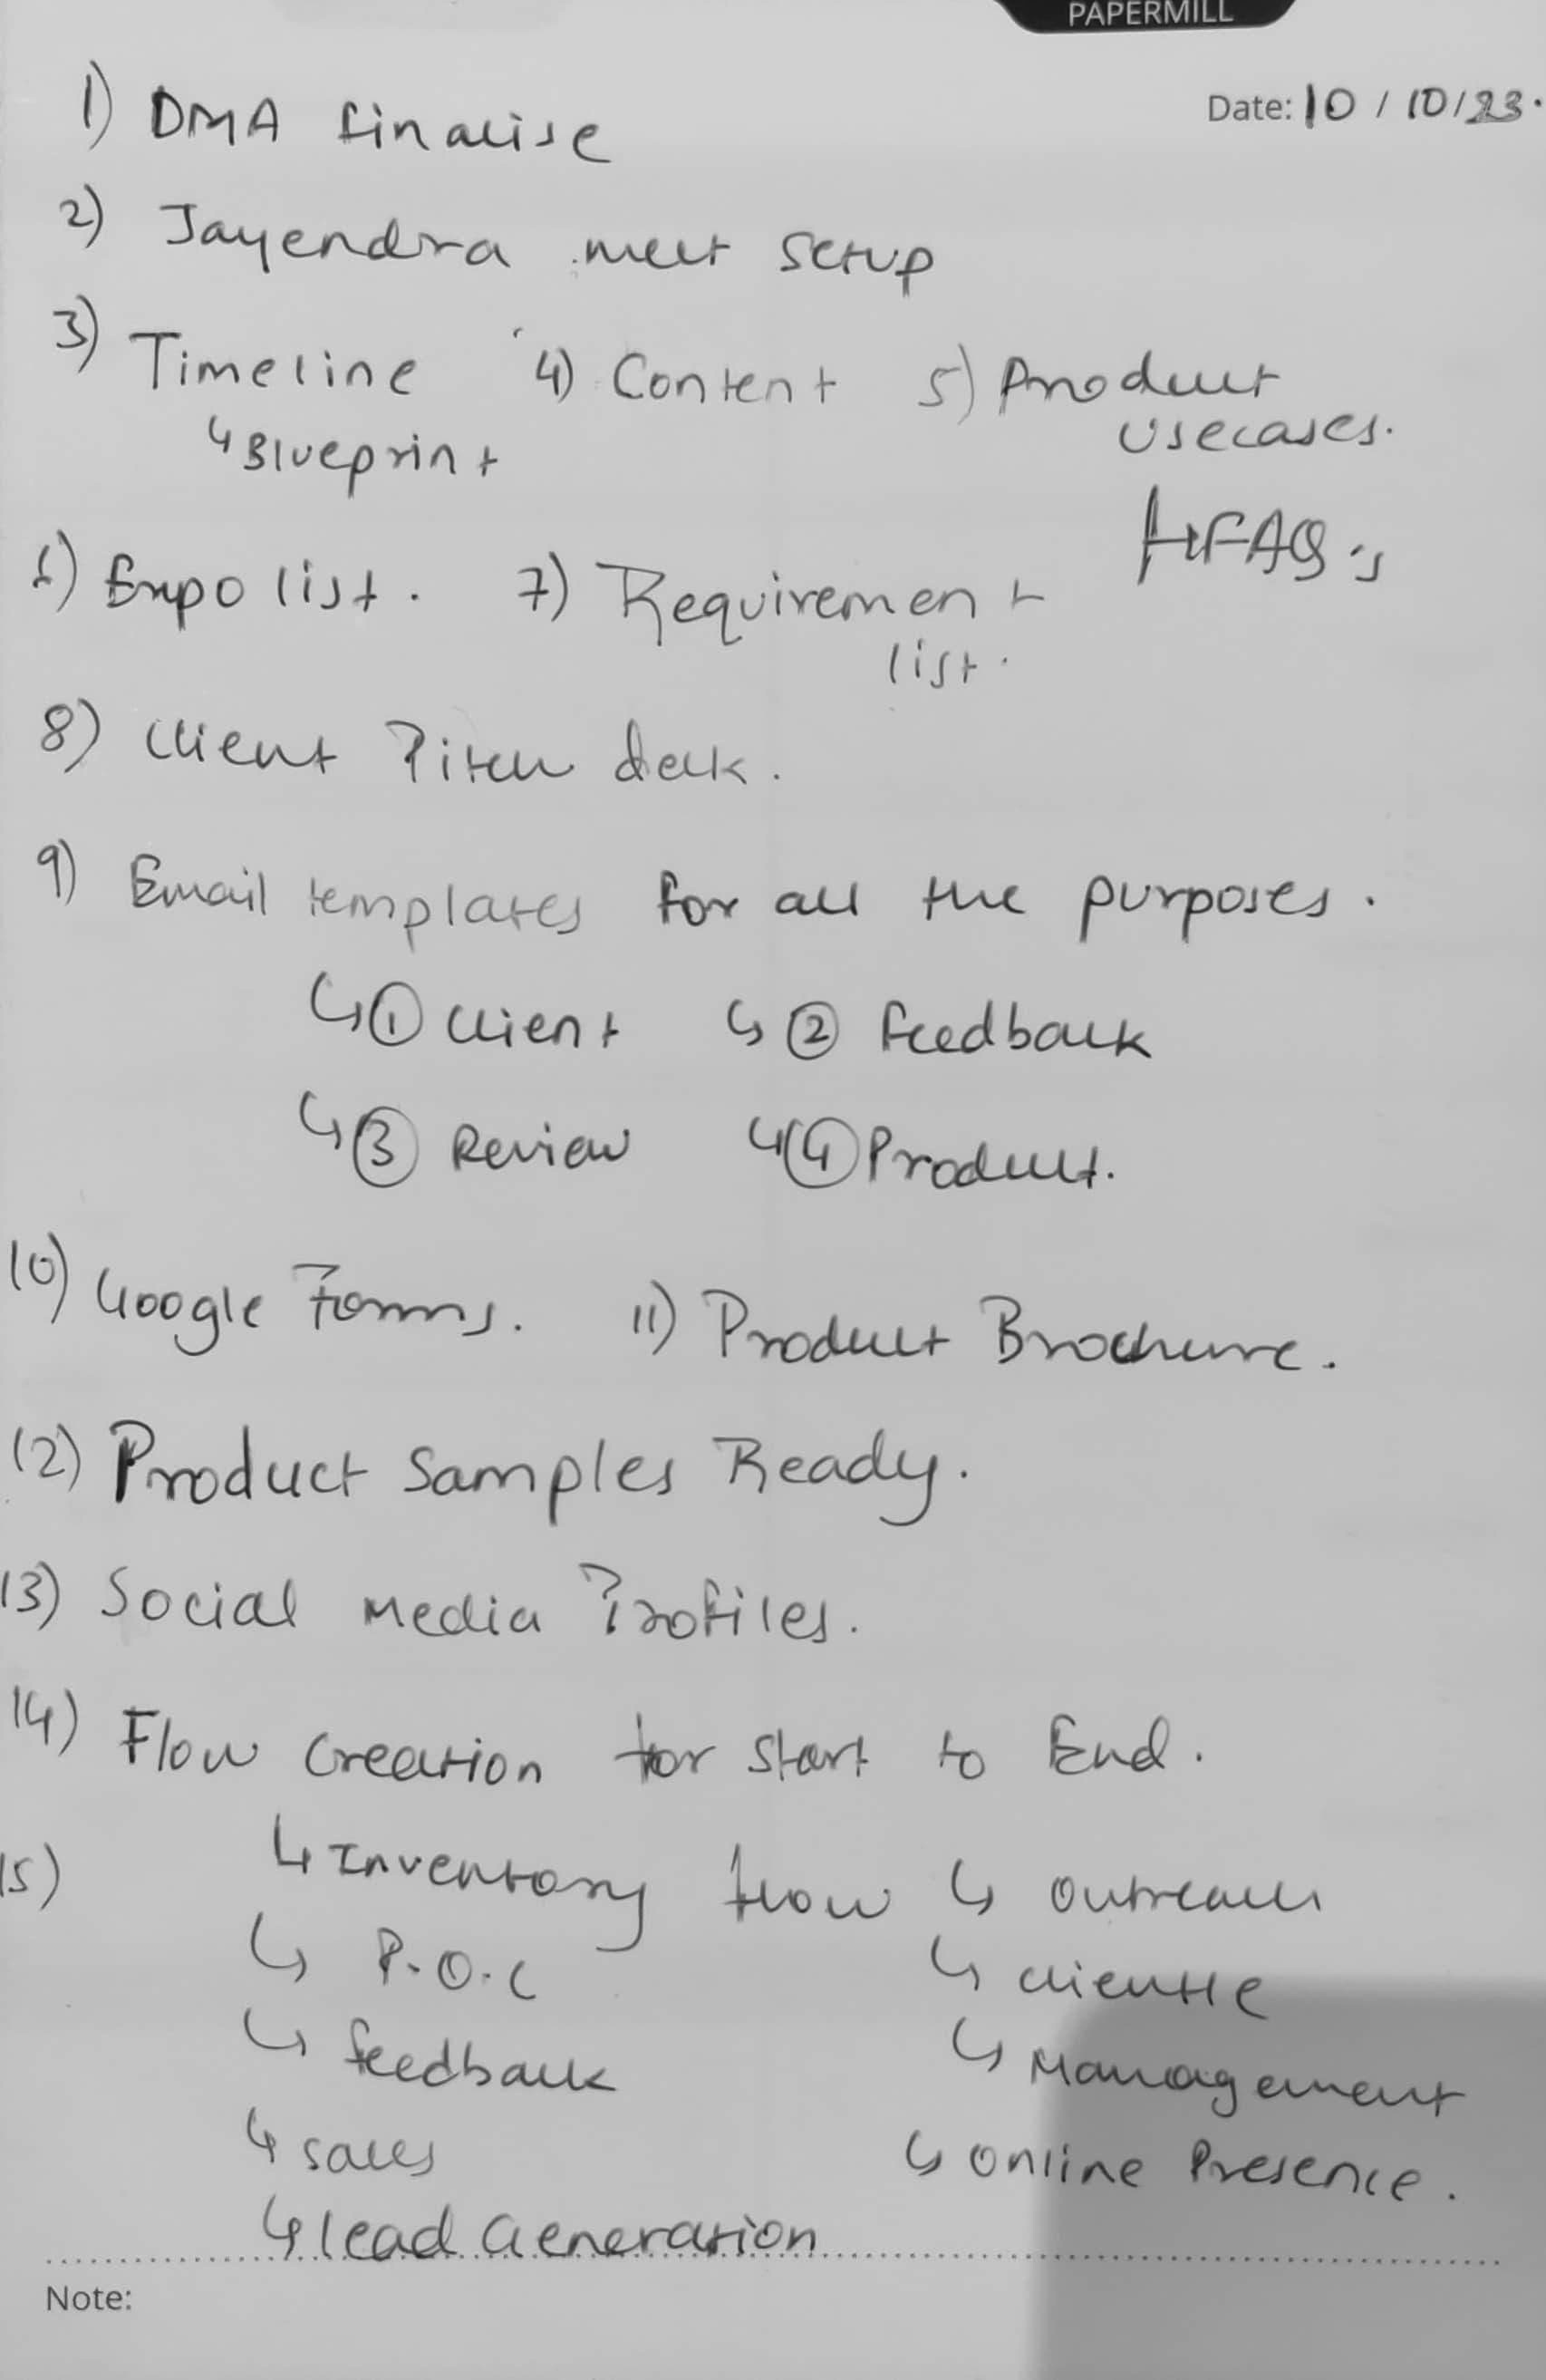 PAPERMILL
Date: 10 / 10 / 23.
1) DMA finalise
2) Jayendra meet setup
3) Timeline 4) Content 5) Product
↳ Blueprint usecases.
FAQ's
6) Expo list. 7) Requirement
list.
8) Client Pitch deck.
9) Email templates for all the purposes.
↳ ① Client ↳ ② Feedback
↳ ③ Review ↳ ④ Product.
10) Google Forms. 11) Product Brochure.
12) Product Samples Ready.
13) Social Media Profiles.
14) Flow Creation for start to End.
15) ↳ Inventory flow ↳ Outreach
↳ P.O.C ↳ clientle
↳ feedback ↳ Management
↳ sales ↳ Online Presence.
↳ lead Generation
Note: